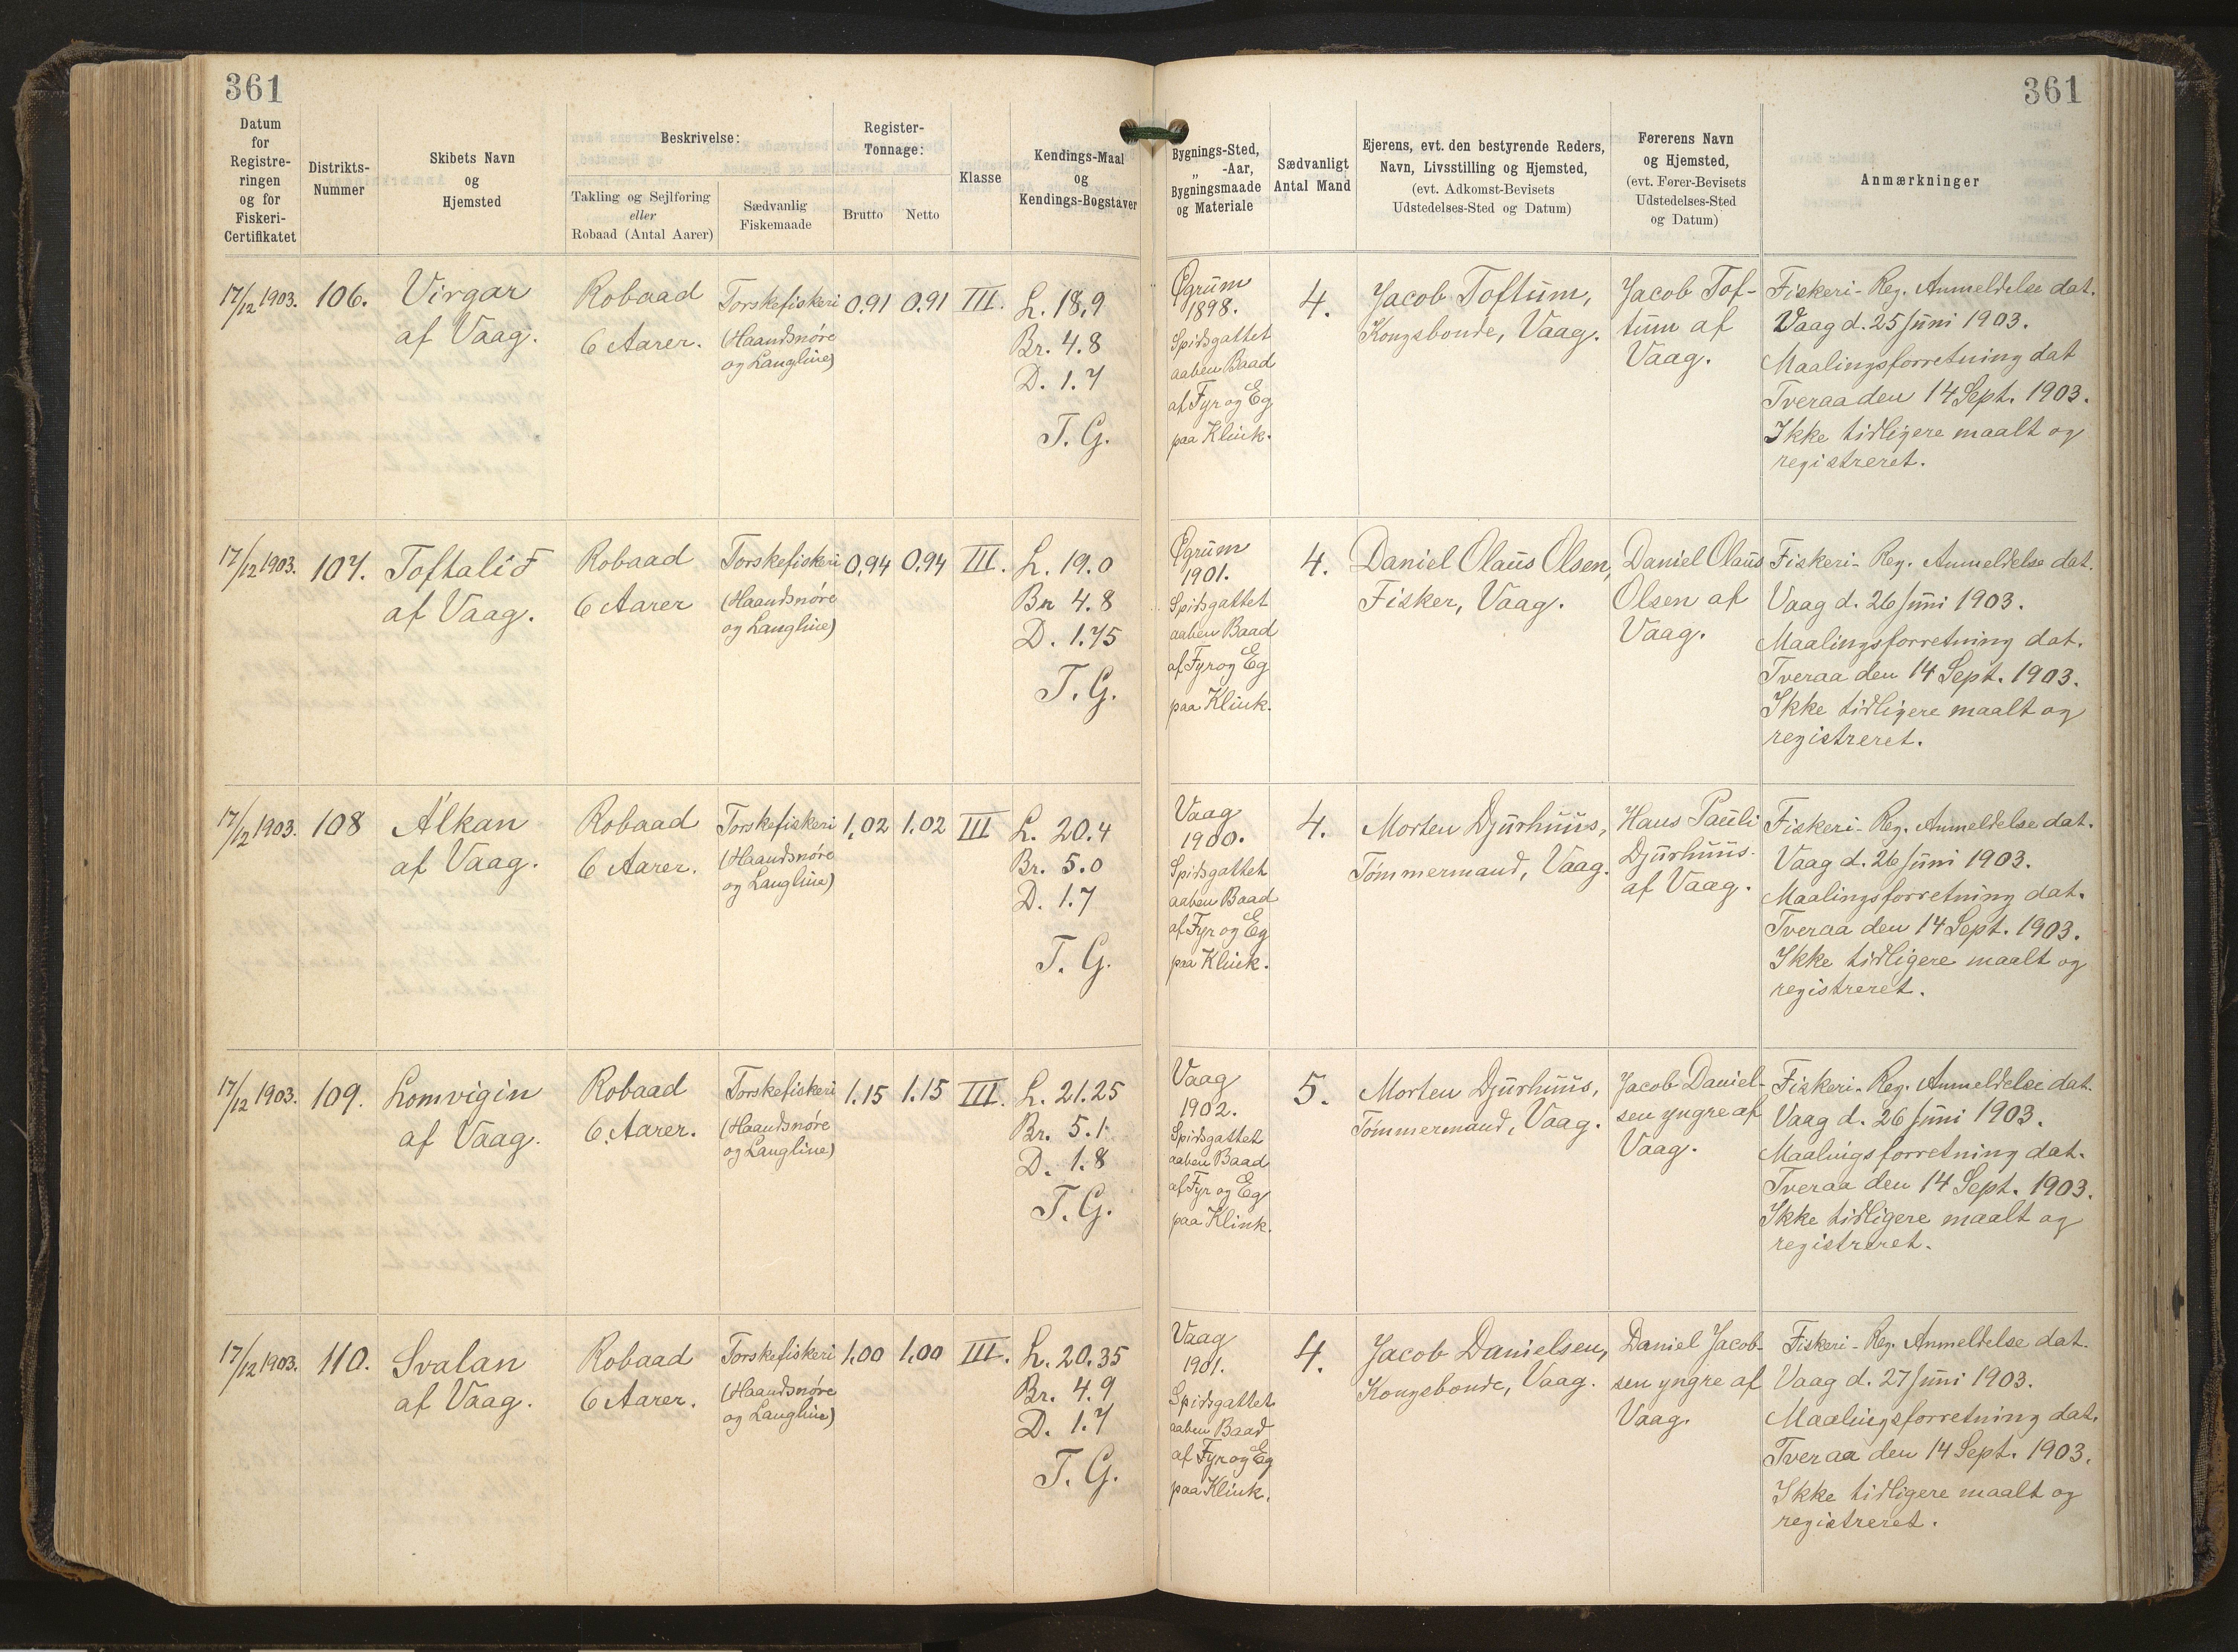 361
361
Datum
for
Registre-
ringen
og for
Fiskeri-
Certifikatet
Distrikts-
Nummer
Skibets Navn
og
Hjemsted
Beskrivelse:
Takling og Sejlføring
eller
Robaad (Antal Aarer)
Sædvanlig
Fiskemaade
Register-
Tonnage:
Brutto
Netto
Klasse
Kendings-Maal
og
Kendings-Bogstaver
Bygnings-Sted,
„ -Aar,
Bygningsmaade
og Materiale
Sædvanligt
Antal Mand
Ejerens, evt. den bestyrende Reders,
Navn, Livsstilling og Hjemsted,
(evt. Adkomst-Bevisets
Udstedelses-Sted og Datum)
Førerens Navn
og Hjemsted,
(evt. Fører-Bevisets
Udstedelses-Sted
og Datum)
Anmærkninger
17/12 1903.
106.
Virgar
af Vaag.
Robaad
6 Aarer.
Torskefiskeri
(Haandsnøre
og Langline)
0.91
0.91
III.
L. 18,9
Br. 4.8
D. 1.7
T. G.
Øgrum
1898.
Spidsgattet
aaben Baad
af Fyr og Eg
paa Klink.
4.
Jacob Toftum,
Kongsbonde, Vaag.
Jacob Tof-
tum af
Vaag.
Fiskeri-Reg. Anmeldelse dat.
Vaag d. 25 Juni 1903.
Maalingsforretning dat
Tveraa den 14 Sept. 1903.
Ikke tidligere maalt og
registreret.
17/12 1903.
107.
Toftalið
af Vaag.
Robaad
6 Aarer
Torskefiskeri
(Haandsnøre
og Langline)
0,94
0.94
III.
L. 19.0
Br 4.8
D. 1.75
T. G.
Øgrum
1901.
Spidsgattet
aaben Baad
af Fyr og Eg
paa Klink.
4.
Daniel Olaus Olsen,
Fisker, Vaag.
Daniel Olaus
Olsen af
Vaag.
Fiskeri-Reg. Anmeldelse dat.
Vaag d. 26 Juni 1903.
Maalingsforretning dat.
Tveraa den 14 Sept. 1903.
Ikke tidligere maalt og
registreret.
17/12 1903.
108
Álkan
af Vaag.
Robaad
6 Aarer.
Torskefiskeri
(Haandsnøre
og Langline)
1,02
1.02
III
L. 20.4
Br. 5.0
D. 1.7
T. G.
Vaag
1900.
Spidsgattet
aaben Baad
af Fyr og Eg
paa Klink.
4.
Morten Djurhuus,
Tømmermand, Vaag.
Hans Pauli
Djurhuus.
af Vaag.
Fiskeri-Reg. Anmeldelse dat.
Vaag d. 26 Juni 1903.
Maalingsforretning dat.
Tveraa den 14 Sept. 1903.
Ikke tidligere maalt og
registreret.
17/12 1903.
109.
Lomvigin
af Vaag.
Robaad
6 Aarer.
Torskefiskeri
(Haandsnøre
og Langline)
1.15
1.15
III.
L. 21.25
Br. 5.1
D. 1.8
T. G.
Vaag
1902.
Spidsgattet
aaben Baad
af Fyr og Eg
paa Klink.
5.
Morten Djurhuus,
Tømmermand, Vaag.
Jacob Daniel-
sen yngre af
Vaag.
Fiskeri-Reg. Anmeldelse dat.
Vaag d. 26 Juni 1903.
Maalingsforretning dat.
Tveraa den 14 Sept. 1903.
Ikke tidligere maalt og
registreret.
17/12 1903.
110.
Svalan
af Vaag.
Robaad
6 Aarer.
Torskefiskeri
(Haandsnøre
og Langline)
1.00
1.00
III.
L. 20.35
Br. 4.9
D. 1.7
T. G.
Vaag
1901.
Spidsgattet
aaben Baad
af Fyr og Eg
paa Klink.
4.
Jacob Danielsen,
Kongsbonde, Vaag.
Daniel Jacob-
sen yngre af
Vaag.
Fiskeri-Reg. Anmeldelse dat.
Vaag d. 27 Juni 1903.
Maalingsforretning dat.
Tveraa den 14 Sept. 1903.
Ikke tidligere maalt og
registreret.